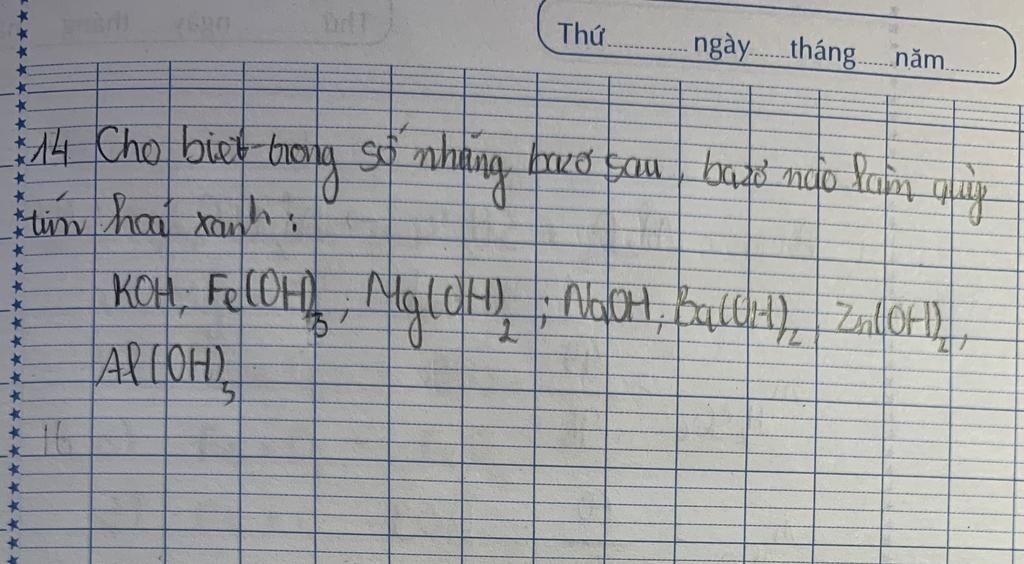 Thứ.............. ngày......tháng......năm............
14 Cho biết trong số những bazơ sau, bazơ nào làm quỳ
tím hoá xanh:
KOH, Fe(OH)₃; Mg(OH)₂; NaOH; Ba(OH)₂, Zn(OH)₂,
Al(OH)₃